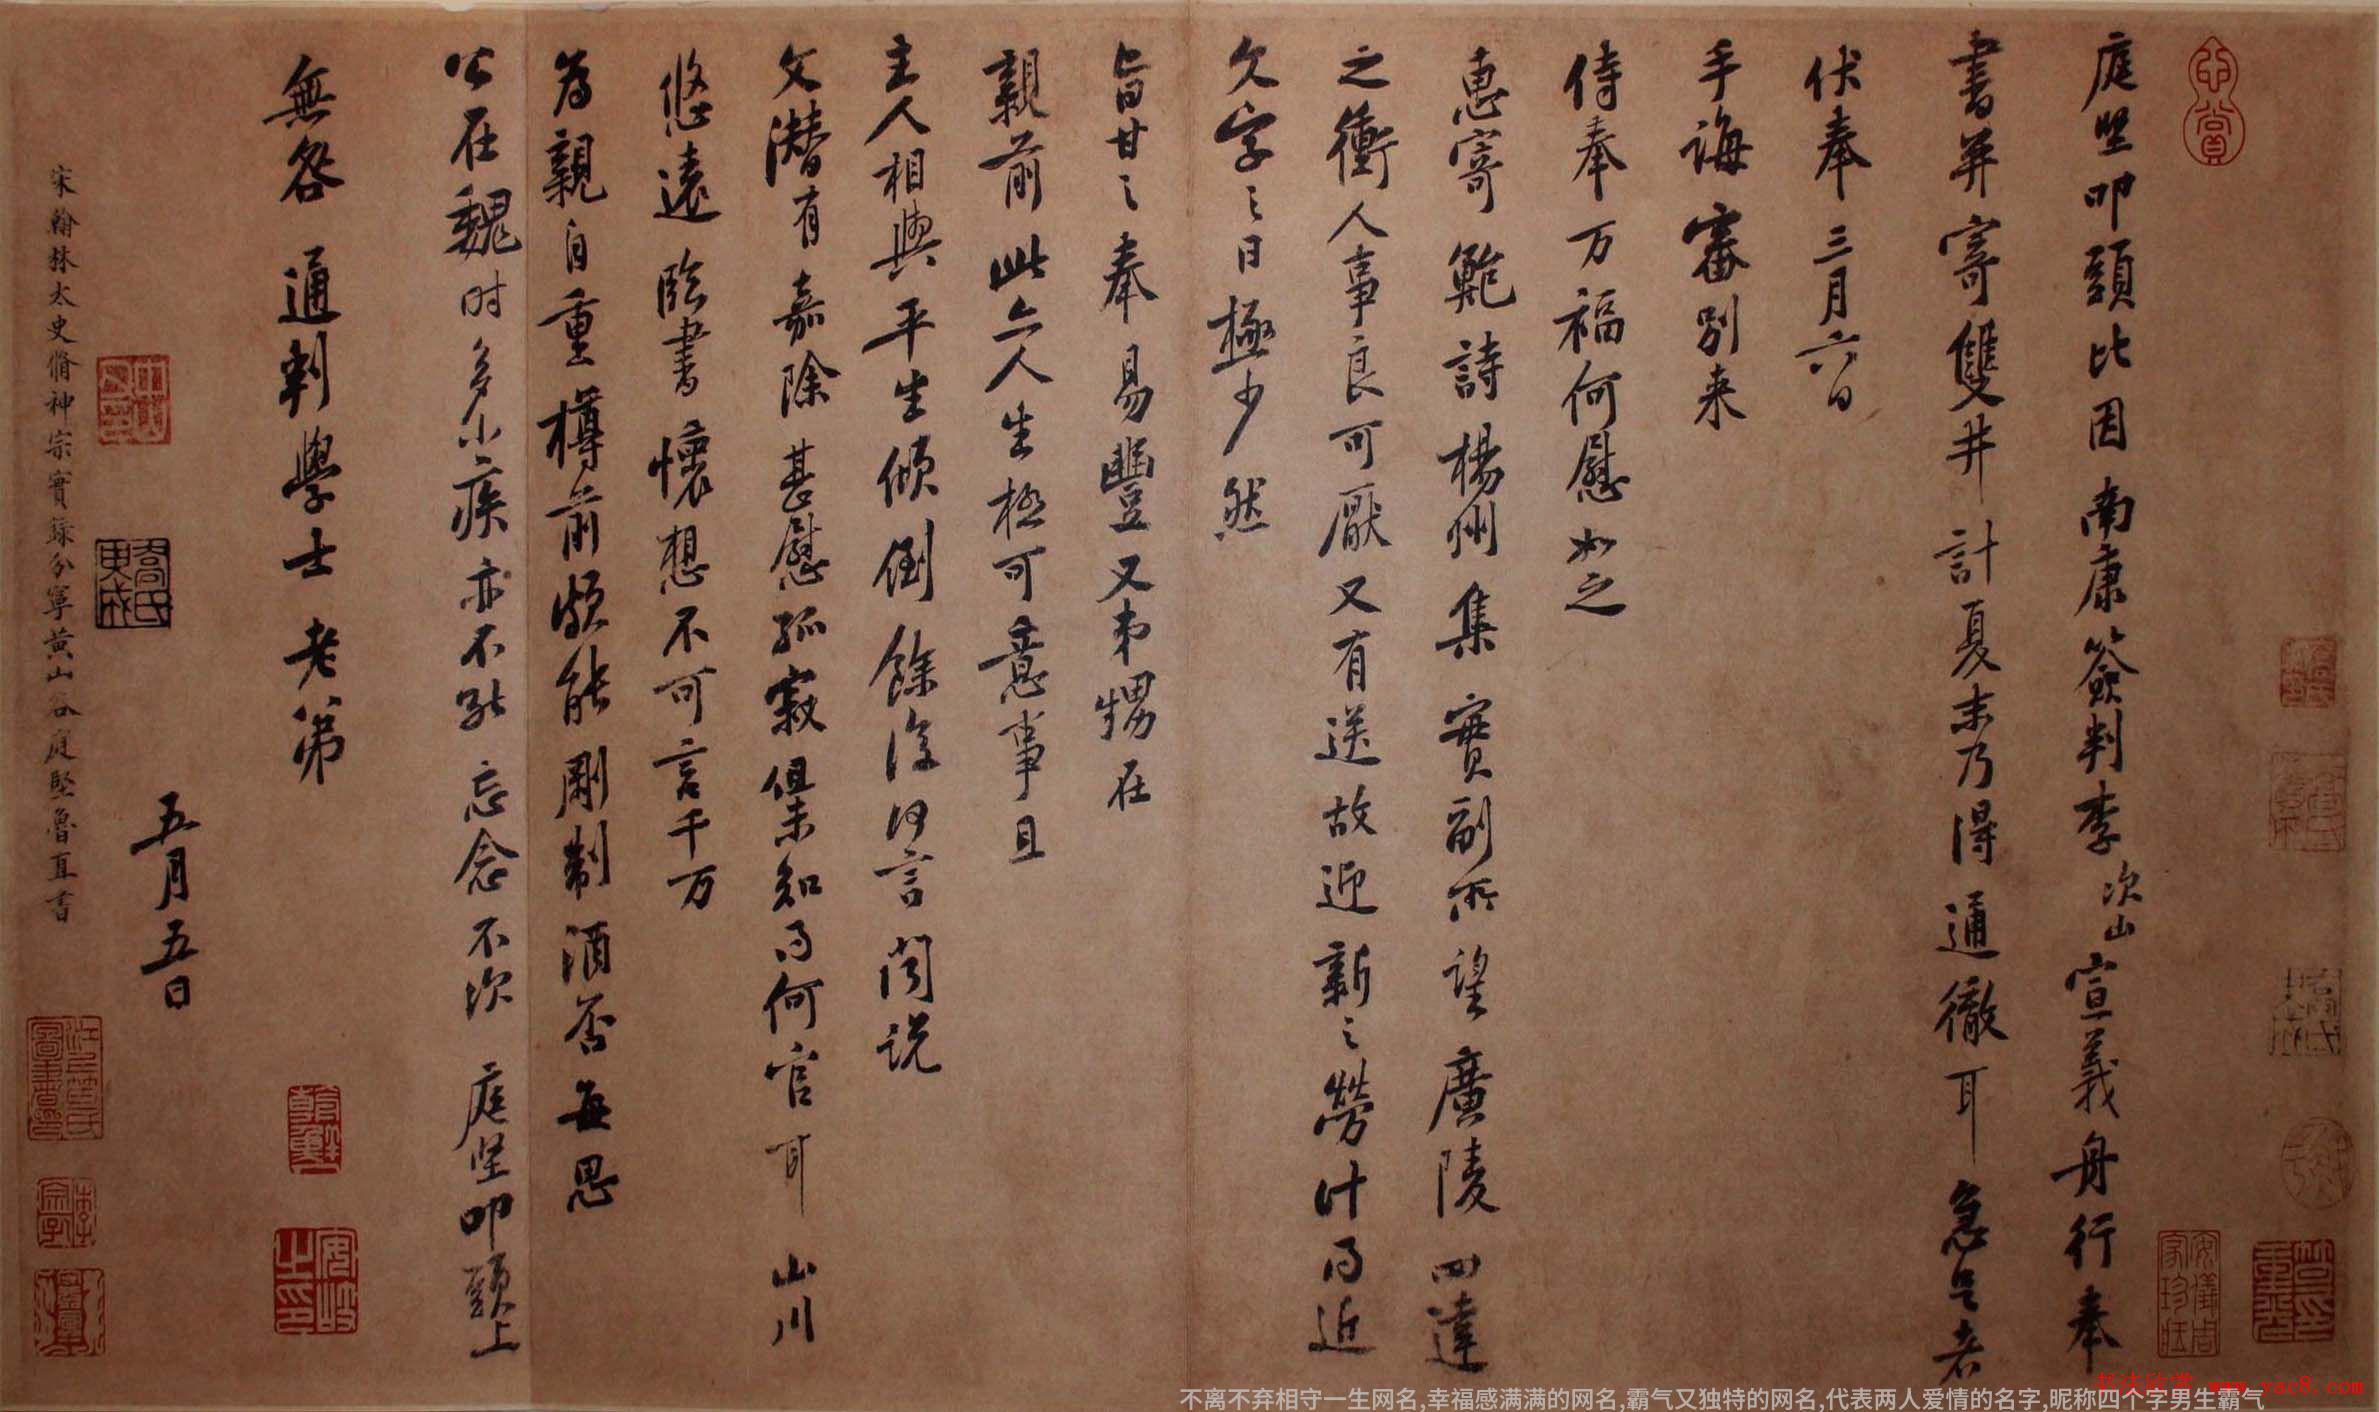 庭堅叩頭比因南康簽判李次山宣義舟行奉
書并寄雙井計夏末乃得通徹耳急足者
伏奉三月六日
手誨審別来
侍奉万福何慰如之
惠寄鮑詩楊州集實副所望廣陵四達
之衝人事良可厭又有送故迎新之勞計得近
文字之日極少然
旨甘之奉易豐又弟甥在
親前此亦人生極可意事且
主人相與平生傾倒餘復何言聞説
文潛有嘉除甚慰孤寂但未知得何官耳山川
悠遠臨書懷想不可言千万
為親自重樽前頗能剛制酒否每思
公在魏时多小疾亦不能忘念不次庭堅叩頭上
無咎通判學士老弟
五月五日
宋翰林太史脩神宗實錄分寧黄山谷庭堅魯直書
书法欣赏 www.yac8.com
不离不弃相守一生网名,幸福感满满的网名,霸气又独特的网名,代表两人爱情的名字,昵称四个字男生霸气